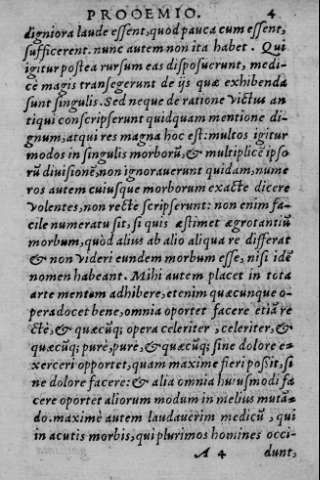 PROOEMIO. 4
digniora laude essent, quòd pauca cum essent,
sufficerent. nunc autem non ita habet. Qui
igitur postea rursum eas disposuerunt, medi-
ce magis transegerunt de ijs quæ exhibenda
sunt singulis. Sed neque de ratione victus an
tiqui conscripserunt quidquam mentione di-
gnum, atqui res magna hoc est: multos igitur
modos in singulis morborū, & multiplicē ipso
rū divisionē, non ignoraverunt quidam, nume
ros autem cuiusque morborum exacte dicere
volentes, non recte scripserunt: non enim fa-
cile numeratu sit, si quis æstimet ægrotantiū
morbum, quòd alius ab alio aliqua re differat
& non videri eundem morbum esse, nisi idē
nomen habeant. Mihi autem placet in tota
arte mentem adhibere, etenim quæcunque o-
pera docet bene, omnia oportet facere etiā re
ctè, & quæcūq; opera celeriter, celeriter, &
quæcūq; purè, purè, & quæcūq; sine dolore e-
xerceri opportet, quam maxime fieri possit, si
ne dolore facere: & alia omnia huiusmodi fa
cere oportet aliorum modum in melius mutā-
do. maximè autem laudaverim medicū, qui
in acutis morbis, qui plurimos homines occi-
A 4 dunt,